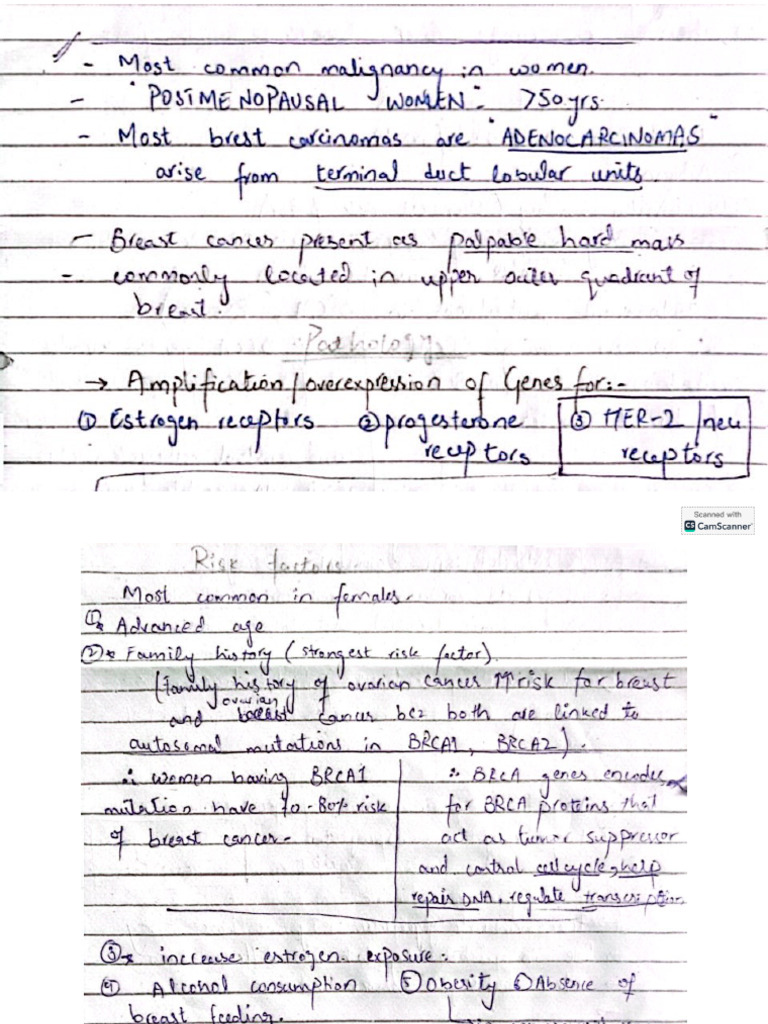 - Most common malignancy in women.
- "POSTMENOPAUSAL WOMEN" >50yrs.
- Most brest carcinomas are "ADENOCARCINOMAS"
arise from terminal duct lobular units.
- Breast cancer present as palpable hard mass
- commonly located in upper outer quadrant of
breast.
Pathology
→ Amplification/overexpression of Genes for:-
① Estrogen receptors ② progesterone receptors ③ HER-2/neu receptors
Scanned with
CS CamScanner
Risk factors
Most common in females.
① * Advanced age
② * Family history (strongest risk factor)
(Family history of ovarian cancer ↑↑ risk for breast
and ovarian cancer bcz both are linked to
autosomal mutations in BRCA1, BRCA2).
∴ women having BRCA1
mutation have 70-80% risk
of breast cancer.
∴ BRCA genes encodes
for BRCA proteins that
act as tumor suppressor
and control cell cycle, help
repair DNA, regulate transcription
③ * increase estrogen exposure.
④ Alcohol consumption ⑤ Obesity ⑥ Absence of
breast feeding.